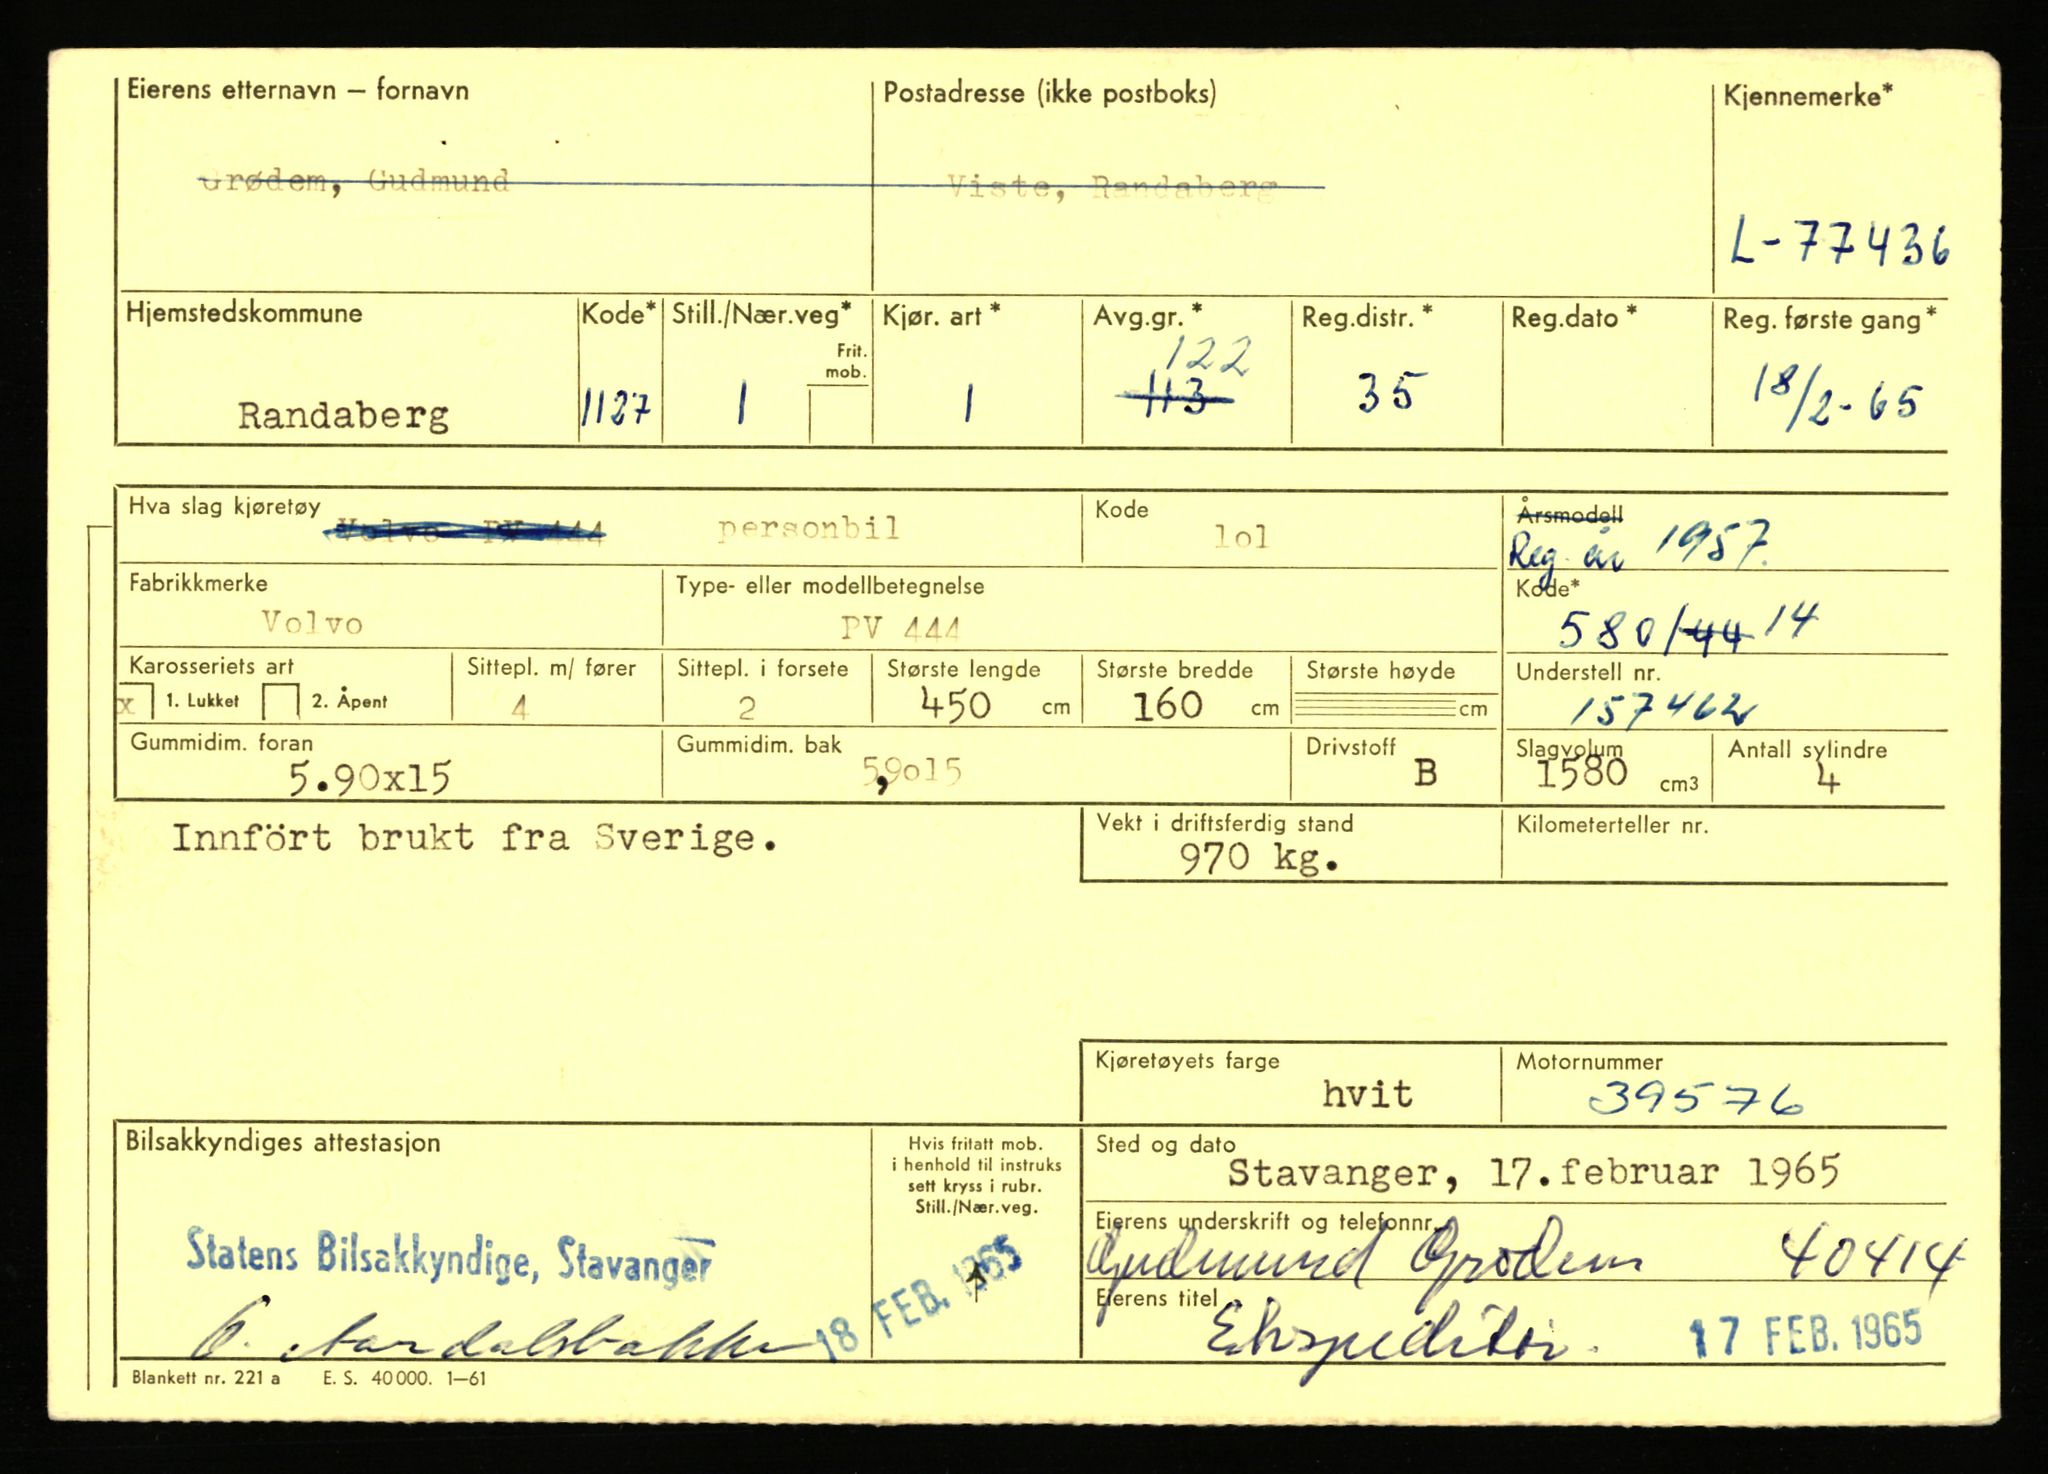 Eierens etternavn – fornavn
Postadresse (ikke postboks)
Kjennemerke*
Grødem, Gudmund
Viste, Randaberg
L-77436
Hjemstedskommune
Kode*
Still./Nær.veg*
Kjør. art *
Avg.gr. *
Reg.distr. *
Reg.dato *
Reg. første gang *
Frit.
mob.
122
Randaberg
1127
1
1
113
35
18/2-65
Hva slag kjøretøy
Volvo PV 444 personbil
Kode
lol
Årsmodell
Reg. år 1957.
Fabrikkmerke
Volvo
Type- eller modellbetegnelse
PV 444
Kode*
580/44 14
Karosseriets art
x 1. Lukket 2. Åpent
Sittepl. m/ fører
4
Sittepl. i forsete
2
Største lengde
450 cm
Største bredde
160 cm
Største høyde
cm
Understell nr.
157462
Gummidim. foran
5.90x15
Gummidim. bak
5,9o15
Drivstoff
B
Slagvolum
1580 cm3
Antall sylindre
4
Innfört brukt fra Sverige.
Vekt i driftsferdig stand
970 kg.
Kilometerteller nr.
Kjøretøyets farge
hvit
Motornummer
39576
Bilsakkyndiges attestasjon
Hvis fritatt mob.
i henhold til instruks
sett kryss i rubr.
Still./Nær.veg.
Sted og dato
Stavanger, 17.februar 1965
Statens Bilsakkyndige, Stavanger
18 FEB. 1965
Eierens underskrift og telefonnr.
Gudmund Grødem 40414
Eierens titel
Ekspeditør.
17 FEB. 1965
Blankett nr. 221 a E. S. 40 000. 1–61